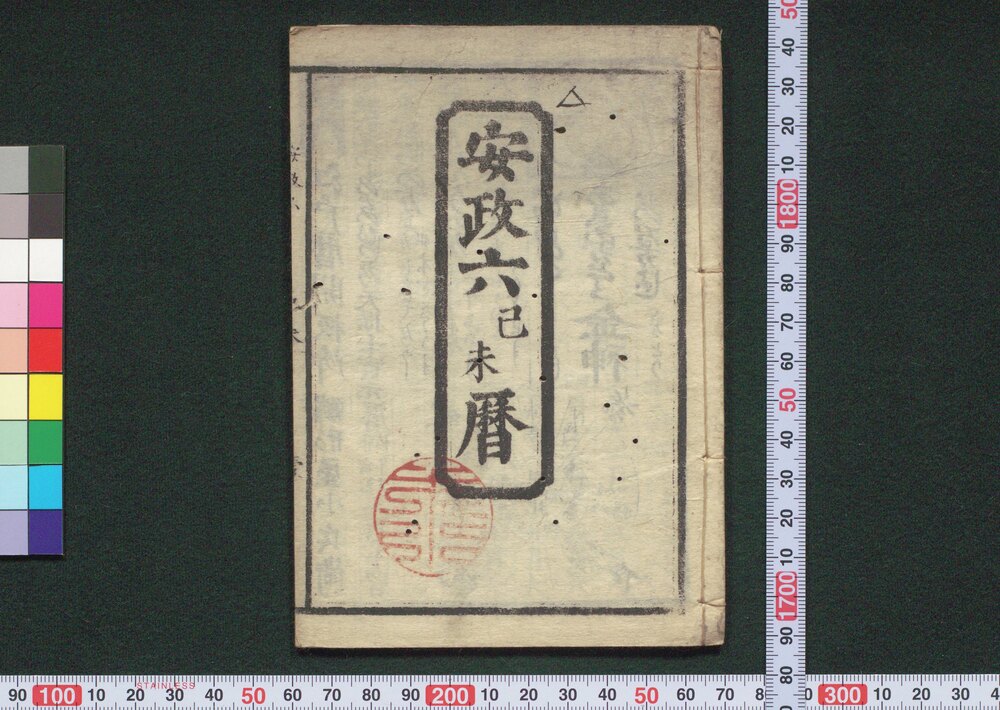 安政六己未暦
50
40
30
20
10
1800
90
80
70
60
50
40
30
20
10
1700
90
80
90 100 10 20 30 40 50 60 70 80 90 200 10 20 30 40 50 60 70 8 0 300 10 20 30 4
STAINLESS